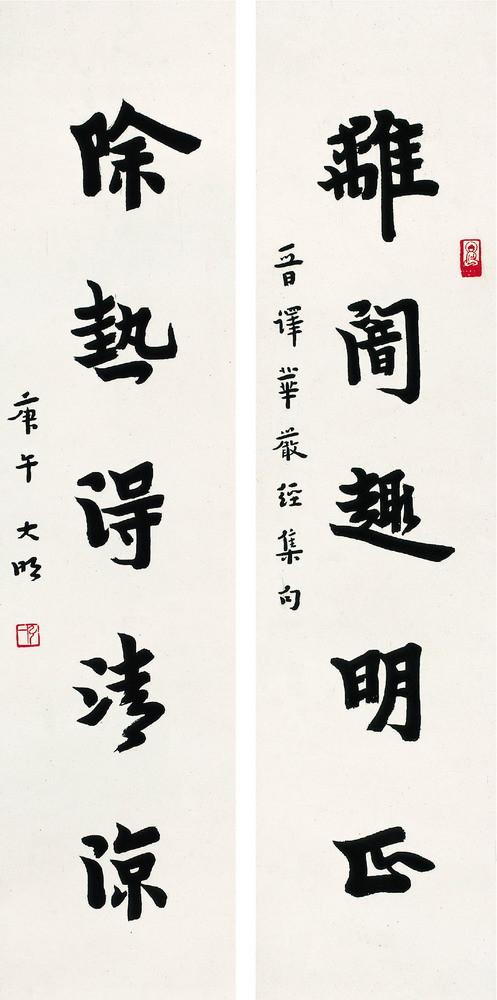 離闇趣明正
晉譯華嚴經集句
除熱得清涼
庚午 大明